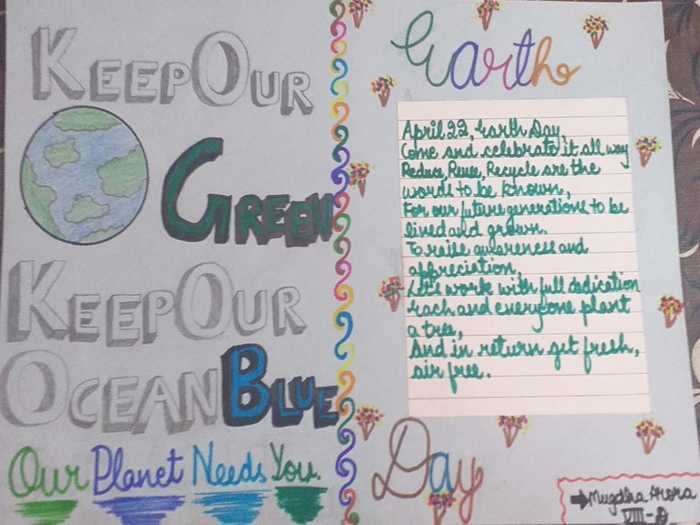 KEEP OUR
GREEN
KEEP OUR
OCEAN BLUE
Our Planet Needs You.
Earth
April 22, Earth Day
Come and celebrate it all way
Reduce, Reuse, Recycle are the
words to be known,
For our future generations to be
lived and grown.
To raise awareness and
appreciation,
Let's work with full dedication
each and everyone plant
a tree,
And in return get fresh,
air free.
Day
Mugdha Arora
VIII-D